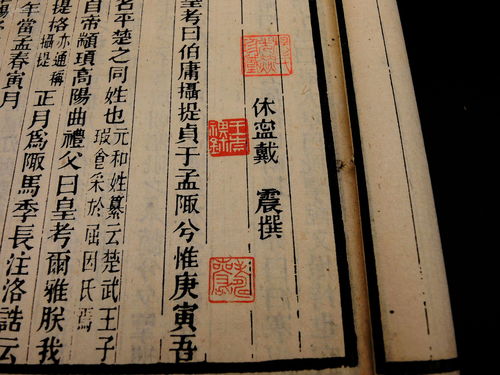 休寍戴 震撰
皇考曰伯庸攝提貞于孟陬兮惟庚寅吾
名平楚之同姓也元和姓纂云楚武王子
瑕食采於屈因氏焉
自帝顓頊高陽曲禮父曰皇考爾雅朕我
提格亦通稱
攝提
正月爲陬馬季長注洛誥云
年當孟春寅月